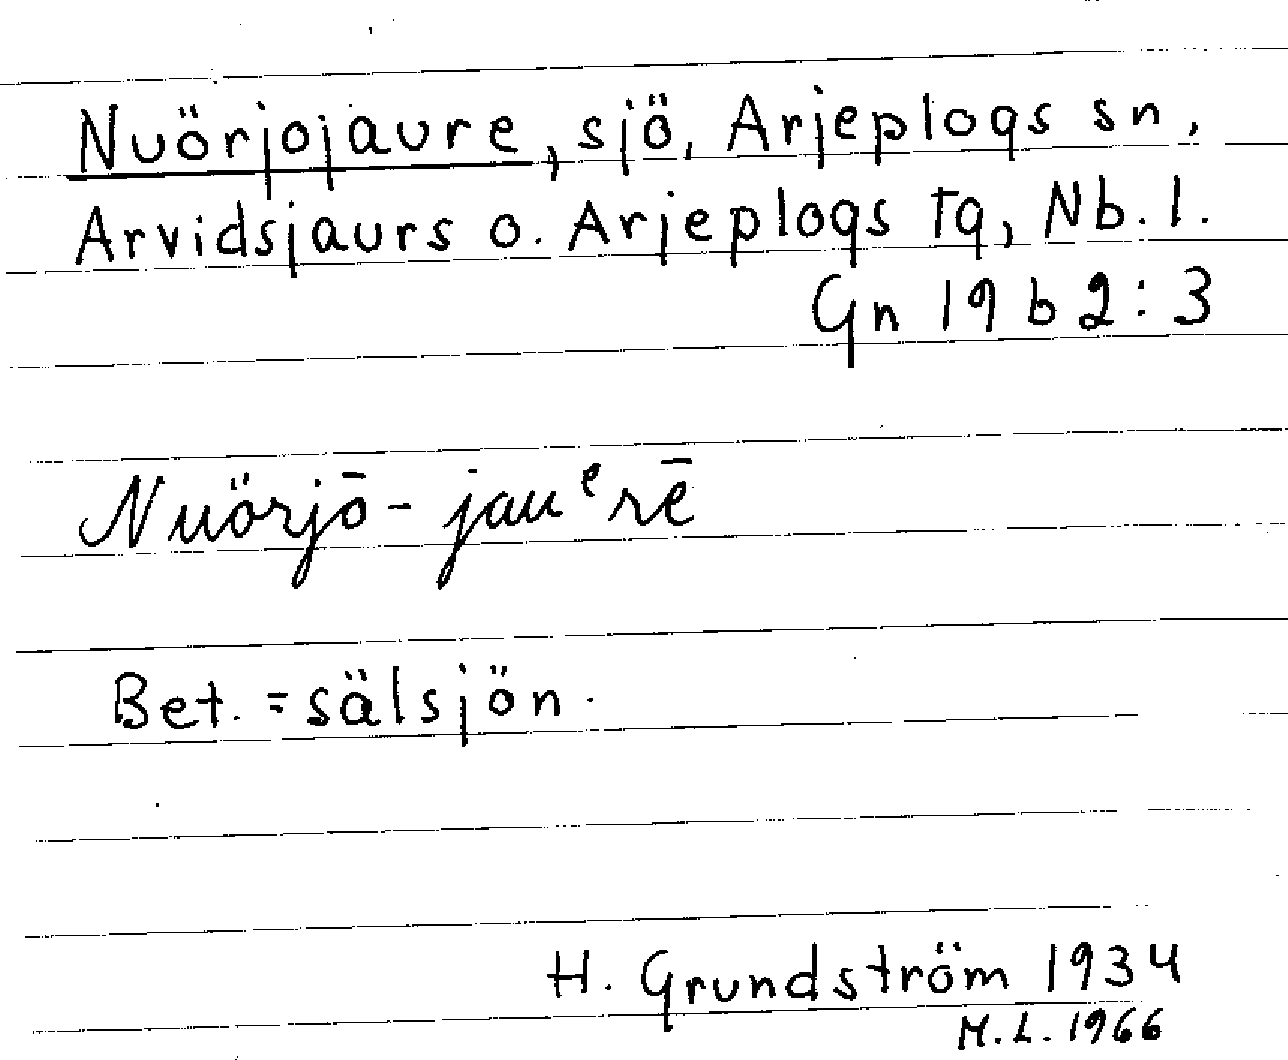 Nuörjojaure, sjö, Arjeplogs sn,
Arvidsjaurs o. Arjeplogs Tg, Nb. l.
Gn 19 b 2:3
Nuörjō-jauᵉrē
Bet. = sälsjön.
H. Grundström 1934
M.L. 1966